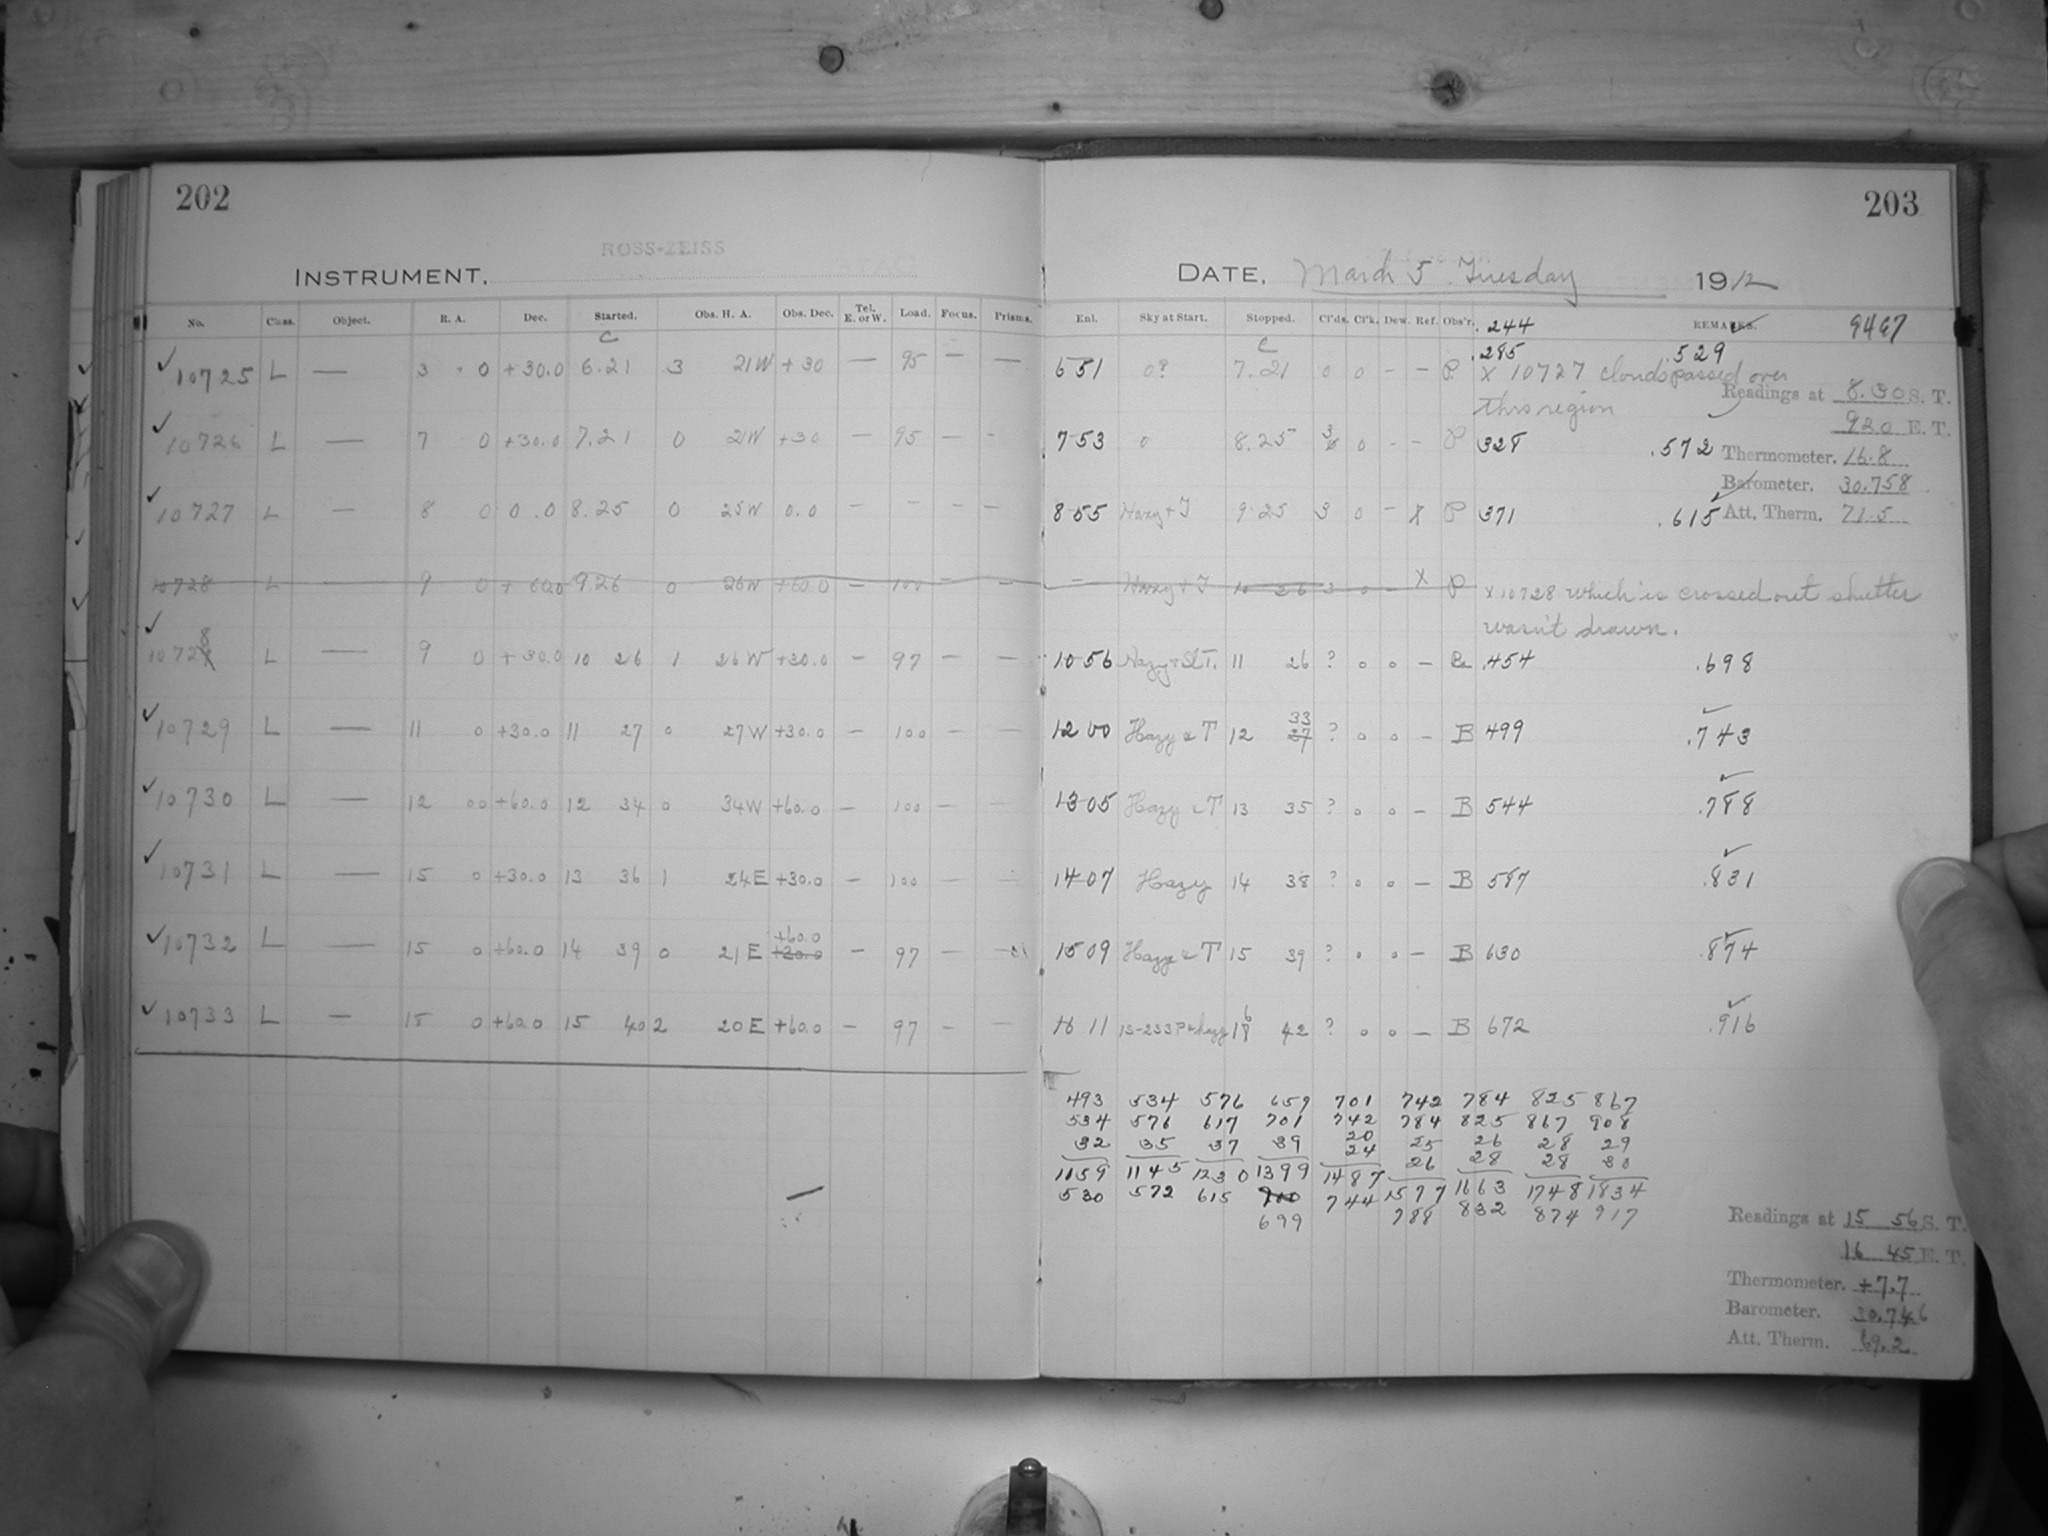 202
ROSS-ZEISS
INSTRUMENT.
No. Class. Object. R. A. Dec. Started. Obs. H. A. Obs. Dec. Tel. E. or W. Load. Focus. Prisms.
C
✓ 10725 L — 3 0 +30.0 6.21 3 21W +30 — 95 — —
✓ 10726 L — 7 0 +30.0 7.21 0 21W +30 — 95 — -
✓ 10727 L — 8 0 0.0 8.25 0 25W 0.0 — - — —
10728 L — 9 0 + 60.0 9 26 0 26W +60.0 — 100 — —
✓ 10728 L — 9 0 + 30.0 10 26 1 26W +30.0 — 97 — —
✓ 10729 L — 11 0 +30.0 11 27 0 27W +30.0 — 100 — —
✓ 10730 L — 12 00 +60.0 12 34 0 34W +60.0 — 100 — —
✓ 10731 L — 15 0 +30.0 13 36 1 24E +30.0 — 100 — —
+60.0
✓ 10732 L — 15 0 +60.0 14 39 0 21E +30.0 — 97 — —
✓ 10733 L — 15 0 +60.0 15 40 2 20E +60.0 — 97 — —
203
DATE, March 5 Tuesday 1912
Enl. Sky at Start. Stopped. Cl'ds. Cl'k. Dew. Ref. Obs'r. .244 REMARKS. 9467
C
.285 .529
651 0? 7.21 0 0 - - P. x 10727 clouds passed over
Readings at 8.30 S. T.
this region
920 E. T.
753 0 8.25 3 0 - - P 328 .572 Thermometer. 16.8
Barometer. 30.758
855 Hazy + T 9 25 3 0 - X P 371 .615 Att. Therm. 71.5
— Hazy + T 10 26 3 0 - X P x 10728 which is crossed out shutter
wasn't drawn.
1056 11 26 ? 0 0 — .454 .698
33
1200 Hazy & T 12 37 ? 0 0 - B 499 .743
1305 Hazy & T 13 35 ? 0 0 - B 544 .788
1407 Hazy 14 38 ? 0 0 — B 587 .831
1509 Hazy & T 15 39 ? 0 0 — B 630 .874
1611 16 42 ? 0 0 — B 672 .916
493 534 576 659 701 742 784 825 867
534 576 617 701 742 784 825 867 908
32 35 37 39 20 25 26 28 29
24 26 28 28 30
1059 1145 1230 1399 1487 1577 1663 1748 1834
530 572 615 700 744 788 832 874 917
699
Readings at 15 56 S. T.
16 45 E. T.
Thermometer. +7.7
Barometer. 30.746
Att. Therm. 69.2